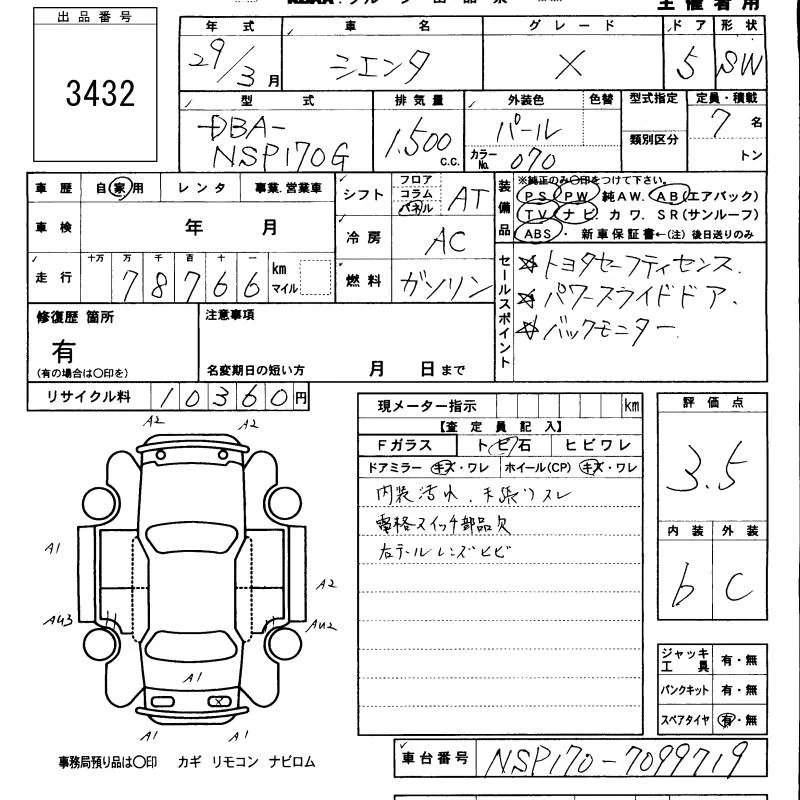 出品番号
3432
年式 車名 グレード ドア 形状
29/3月 シエンタ X 5 SW
型式 排気量 外装色 色替 型式指定 定員・積載
DBA-NSP170G 1,500 c.c. パール 7名
カラーNo. 070 類別区分 トン
車歴 自家用 レンタ 事業.営業車
シフト フロア コラム パネル AT
装備品 ※純正のみ〇印をつけて下さい。
PS PW 純AW. AB(エアバック)
TV ナビ カワ. SR(サンルーフ)
ABS ・ 新車保証書←(注) 後日送りのみ
車検 年 月
冷房 AC
走行 十万 万 千 百 十 一
78766 km マイル
燃料 ガソリン
セールスポイント
☆トヨタセーフティセンス.
☆パワースライドドア.
☆バックモニター.
修復歴 箇所
有
(有の場合は〇印を)
注意事項
名変期日の短い方 月 日まで
リサイクル料 10360円
現メーター指示 km
【査定員記入】
Fガラス トビ石 ヒビワレ
ドアミラー キズ・ワレ ホイール(CP) キズ・ワレ
内装汚れ、
電格スイッチ部品欠
右テールレンズヒビ
評価点
3.5
内装 外装
b C
A2 A2
A1
A2
AU3 AU2
A1
A1 A1
ジャッキ工具 有・無
パンクキット 有・無
スペアタイヤ 有・無
事務局預り品は〇印 カギ リモコン ナビロム
車台番号 NSP170-7099719